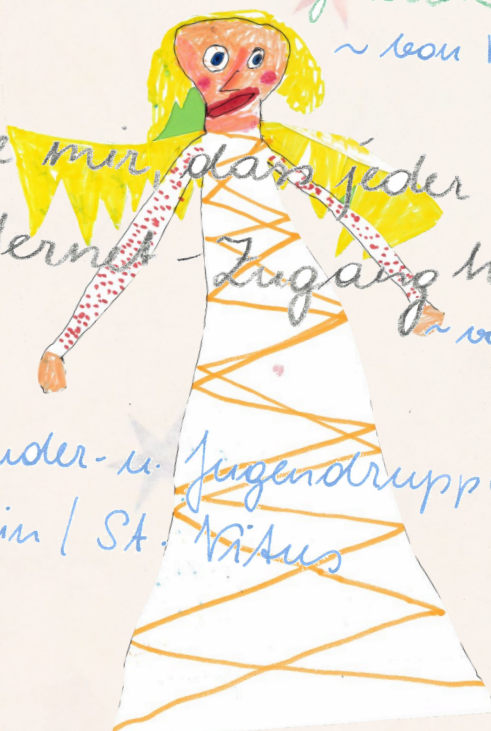 ~ von
e mir, dass jeder
ernet-Zugang h
~ vo
nder- u. Jugendgrupp
in / St. Vitus